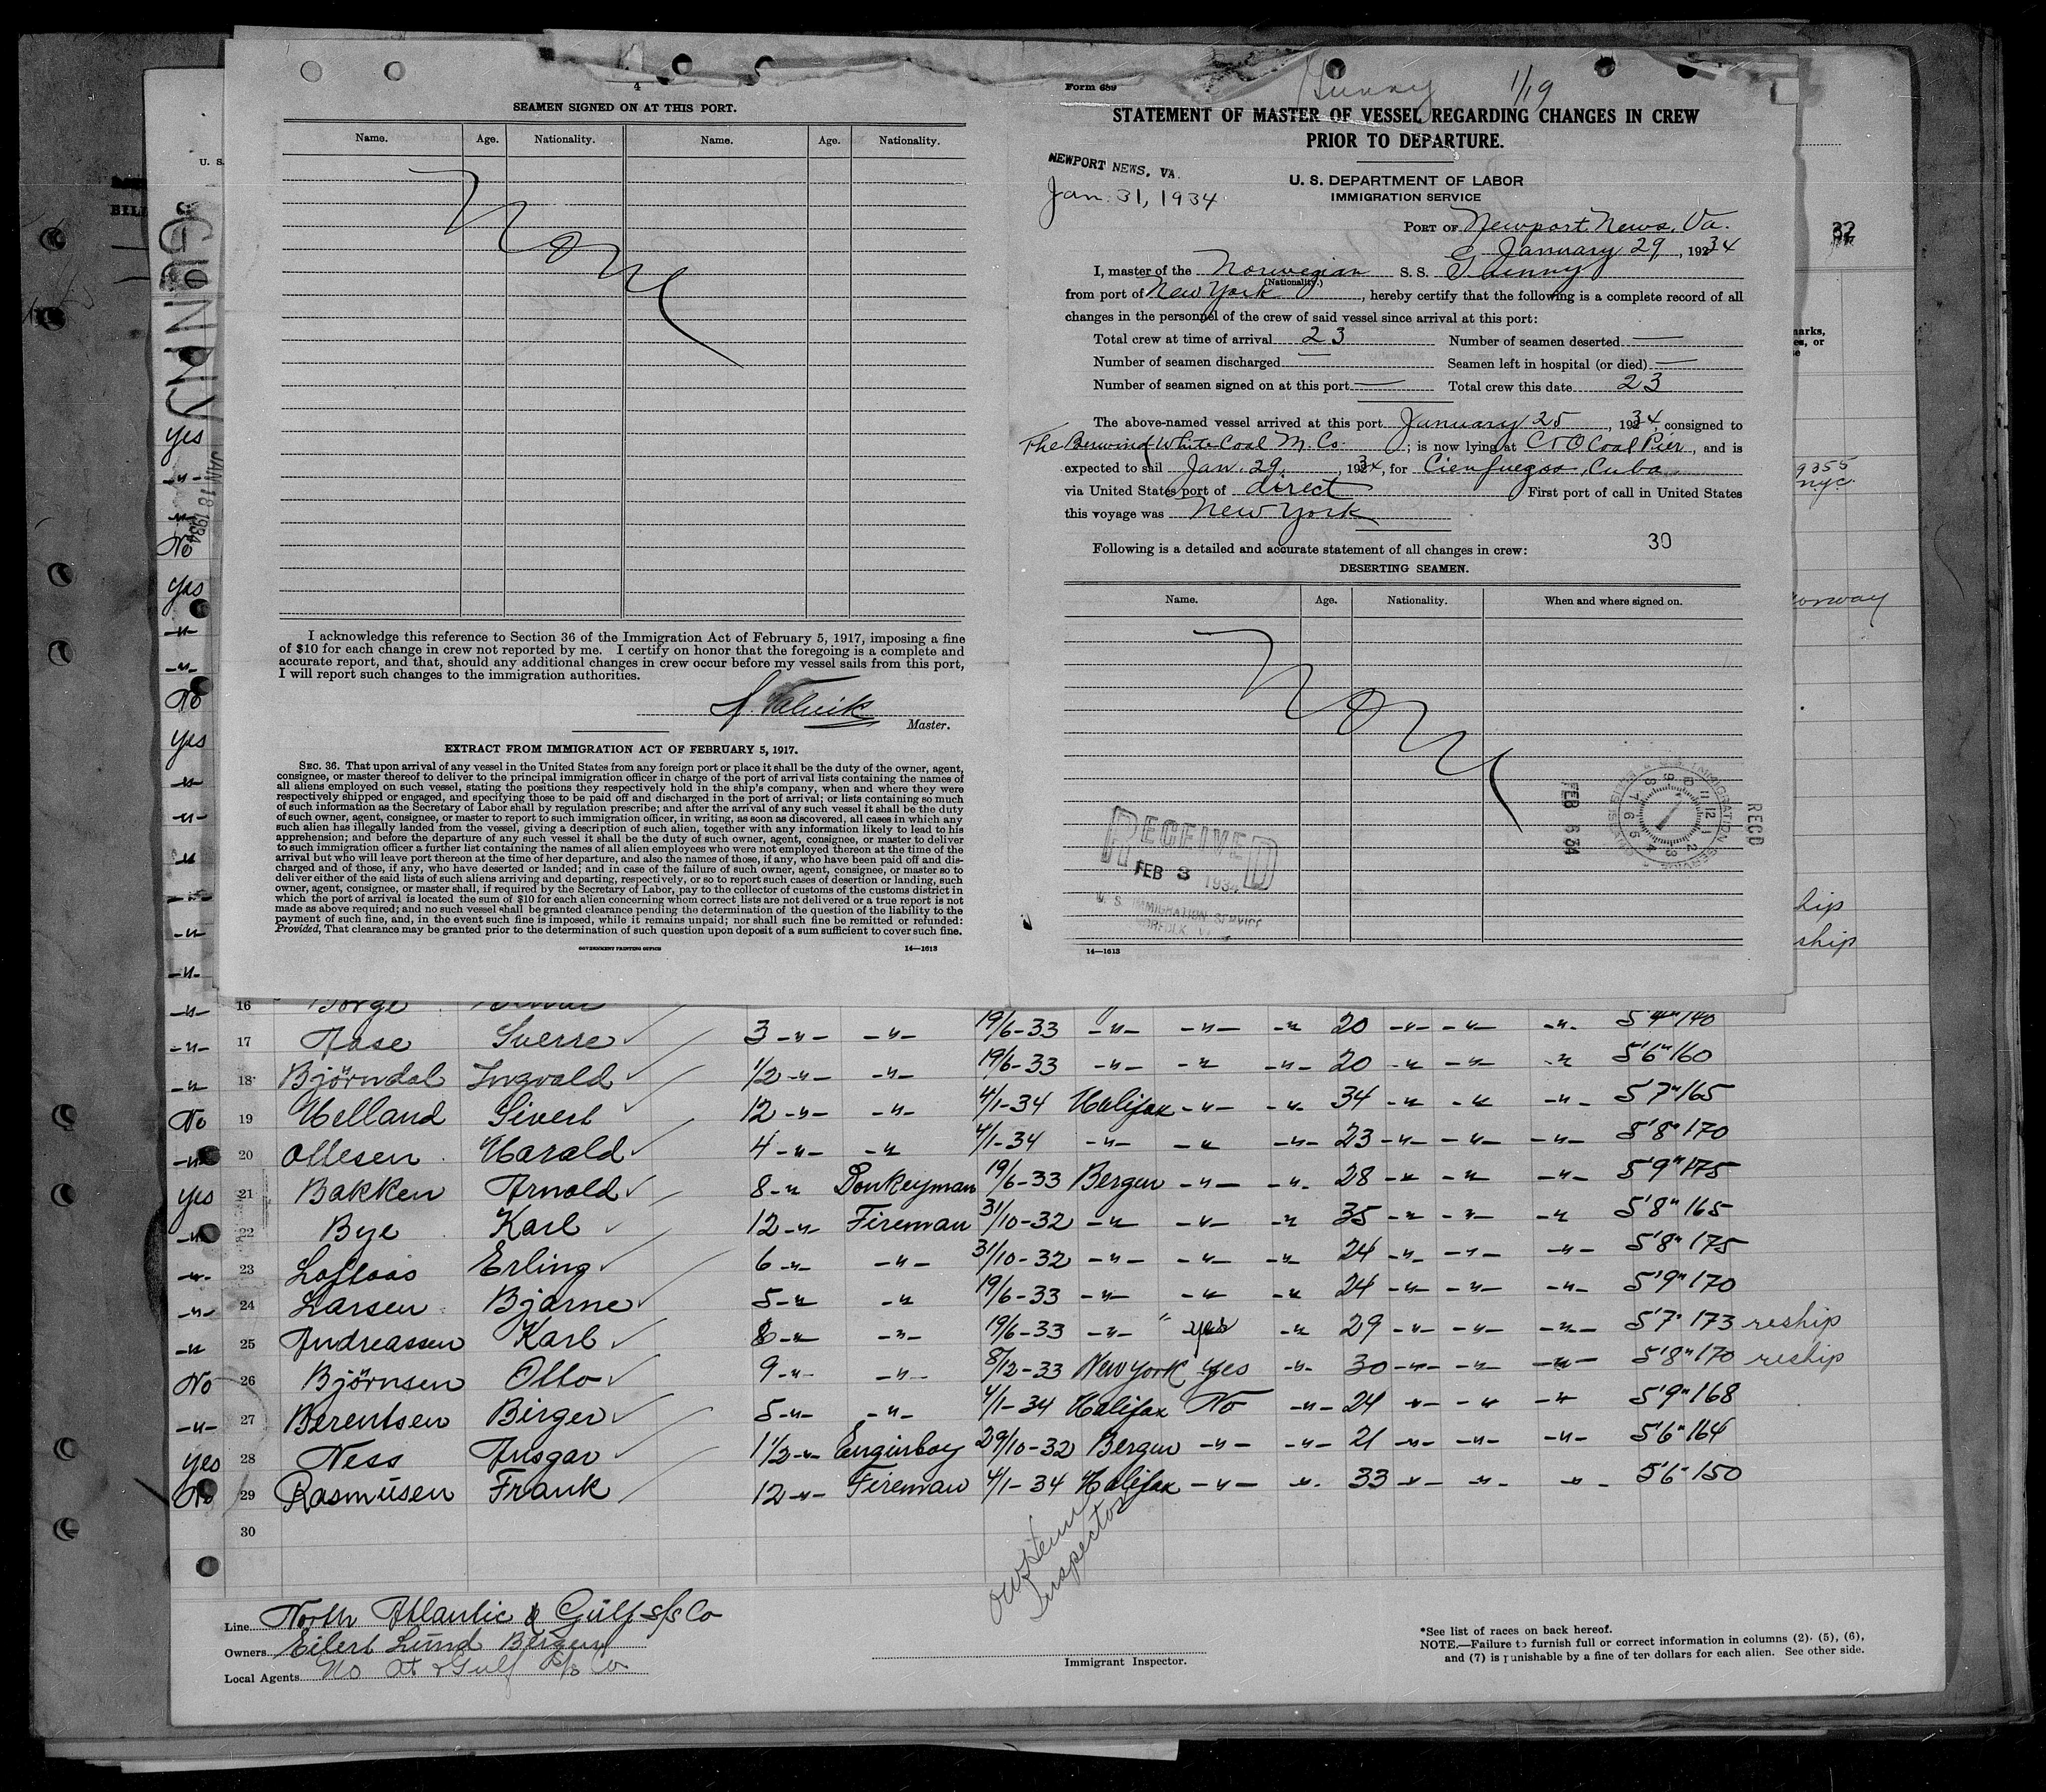 4
SEAMEN SIGNED ON AT THIS PORT.
Name. Age. Nationality. Name. Age. Nationality.
None
I acknowledge this reference to Section 36 of the Immigration Act of February 5, 1917, imposing a fine
of $10 for each change in crew not reported by me. I certify on honor that the foregoing is a complete and
accurate report, and that, should any additional changes in crew occur before my vessel sails from this port,
I will report such changes to the immigration authorities.
Master.
EXTRACT FROM IMMIGRATION ACT OF FEBRUARY 5, 1917.
SEC. 36. That upon arrival of any vessel in the United States from any foreign port or place it shall be the duty of the owner, agent,
consignee, or master thereof to deliver to the principal immigration officer in charge of the port of arrival lists containing the names of
all aliens employed on such vessel, stating the positions they respectively hold in the ship's company, when and where they were
respectively shipped or engaged, and specifying those to be paid off and discharged in the port of arrival; or lists containing so much
of such information as the Secretary of Labor shall by regulation prescribe; and after the arrival of any such vessel it shall be the duty
of such owner, agent, consignee, or master to report to such immigration officer, in writing, as soon as discovered, all cases in which any
such alien has illegally landed from the vessel, giving a description of such alien, together with any information likely to lead to his
apprehension; and before the departure of any such vessel it shall be the duty of such owner, agent, consignee, or master to deliver
to such immigration officer a further list containing the names of all alien employees who were not employed thereon at the time of the
arrival but who will leave port thereon at the time of her departure, and also the names of those, if any, who have been paid off and dis-
charged and of those, if any, who have deserted or landed; and in case of the failure of such owner, agent, consignee, or master so to
deliver either of the said lists of such aliens arriving and departing, respectively, or so to report such cases of desertion or landing, such
owner, agent, consignee, or master shall, if required by the Secretary of Labor, pay to the collector of customs of the customs district in
which the port of arrival is located the sum of $10 for each alien concerning whom correct lists are not delivered or a true report is not
made as above required; and no such vessel shall be granted clearance pending the determination of the question of the liability to the
payment of such fine, and, in the event such fine is imposed, while it remains unpaid; nor shall such fine be remitted or refunded:
Provided, That clearance may be granted prior to the determination of such question upon deposit of a sum sufficient to cover such fine.
GOVERNMENT PRINTING OFFICE 14—1613
Form 689
Gunny 1/19
STATEMENT OF MASTER OF VESSEL REGARDING CHANGES IN CREW
PRIOR TO DEPARTURE.
NEWPORT NEWS, VA.
Jan. 31, 1934
U. S. DEPARTMENT OF LABOR
IMMIGRATION SERVICE
PORT OF Newport News, Va.
January 29, 1934
I, master of the Norwegian S. S. Gunny
(Nationality.)
from port of New York, hereby certify that the following is a complete record of all
changes in the personnel of the crew of said vessel since arrival at this port:
Total crew at time of arrival 23 Number of seamen deserted —
Number of seamen discharged — Seamen left in hospital (or died) —
Number of seamen signed on at this port — Total crew this date 23
The above-named vessel arrived at this port January 25, 1934, consigned to
The Berwind White Coal M. Co.; is now lying at C & O Coal Pier, and is
expected to sail Jan. 29, 1934, for Cienfuegos, Cuba
via United States port of direct First port of call in United States
this voyage was New York
Following is a detailed and accurate statement of all changes in crew: 30
DESERTING SEAMEN.
Name. Age. Nationality. When and where signed on.
None
RECEIVED
FEB 3 1934
U. S. IMMIGRATION SERVICE
NORFOLK, VA.
RECD
FEB 6 34
14—1613
U. S.
GUNNY
JAN 18 1934
32
9355
nyc.
Norway
ship
ship
16 Borge
17 Aase Sverre 3 -"- -"- 19/6-33 -"- -"- -"- 20 -"- -"- -"- 5'4" 140
18 Björndal Ingvald 1/2 -"- -"- 19/6-33 -"- -"- -"- 20 -"- -"- -"- 5'6" 160
No 19 Helland Sivert 12 -"- -"- 4/1-34 Halifax -"- -"- 34 -"- -"- -"- 5'7" 165
20 Ollesen Harald 4 -"- -"- 4/1-34 -"- -"- -"- 23 -"- -"- -"- 5'8" 170
Yes 21 Bakken Arnold 8 -"- Donkeyman 19/6-33 Bergen -"- -"- 28 -"- -"- -"- 5'9" 175
22 Bye Karl 12 -"- Fireman 31/10-32 -"- -"- -"- 35 -"- -"- -"- 5'8" 165
23 Loftaas Erling 6 -"- -"- 31/10-32 -"- -"- -"- 24 -"- -"- -"- 5'8" 175
24 Larsen Bjarne 5 -"- -"- 19/6-33 -"- -"- -"- 24 -"- -"- -"- 5'9" 170
25 Andreassen Karl 8 -"- -"- 19/6-33 -"- yes -"- 29 -"- -"- -"- 5'7" 173 reship
No 26 Björnsen Otto 9 -"- -"- 8/12-33 New York Yes -"- 30 -"- -"- -"- 5'8" 170 reship
27 Berentsen Birger 5 -"- -"- 4/1-34 Halifax No -"- 24 -"- -"- -"- 5'9" 168
Yes 28 Ness Ansgar 1 1/2 -"- Enginboy 29/10-32 Bergen -"- -"- 21 -"- -"- -"- 5'6" 164
No 29 Rasmüsen Frank 12 -"- Fireman 4/1-34 Halifax -"- -"- 33 -"- -"- -"- 5'6" 150
30
Inspector
Line North Atlantic & Gülf S/S Co
Owners Eilert Lünd Bergen
Local Agents No At & Gulf S/S Co
Immigrant Inspector.
*See list of races on back hereof.
NOTE.—Failure to furnish full or correct information in columns (2), (5), (6),
and (7) is punishable by a fine of ten dollars for each alien. See other side.